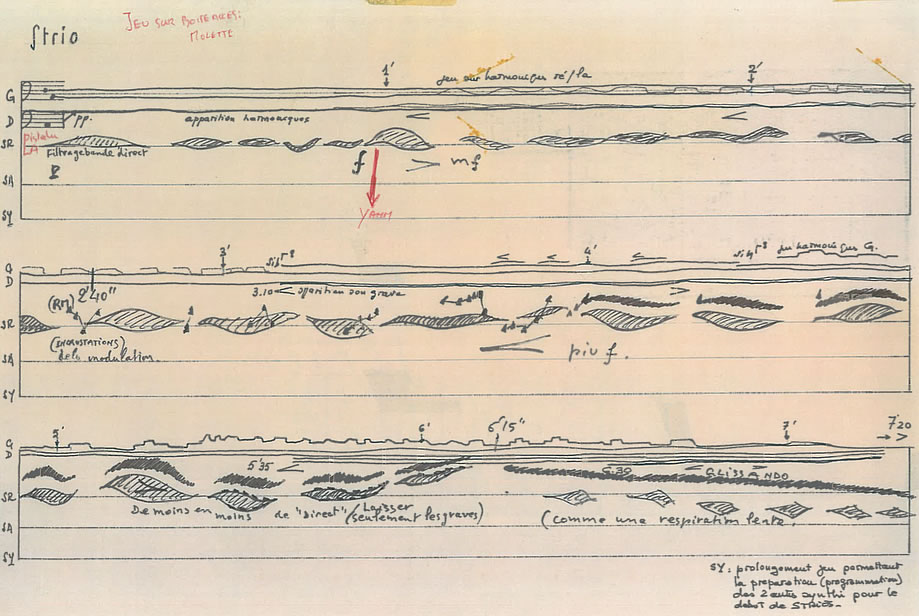 Strio
JEU SUR POITENCES:
MOLETTE
1'
jeu sur harmoniques ré/la
2'
G
D
pp.
apparition harmoniques
SR
LA
Filtrage bande direct
f
mf
SA
YAMM
SY
3'
sib
4'
sib
jeu harmoniques G.
G
D
2'40"
3.10
apparition son grave
(RM)
SR
(INCRUSTATIONS)
de la modulation.
più f.
SA
SY
5'
6'
6'15"
7'
7'20
G
D
5'35
6.30
GLISSANDO
SR
De moins en moins de "direct" (Laisser
seulement les graves)
(comme une respiration lente.
SA
SY
SY: prolongement jeu permettant
la preparation (programmation)
des 2 autres synthi pour le
début de STRIES.